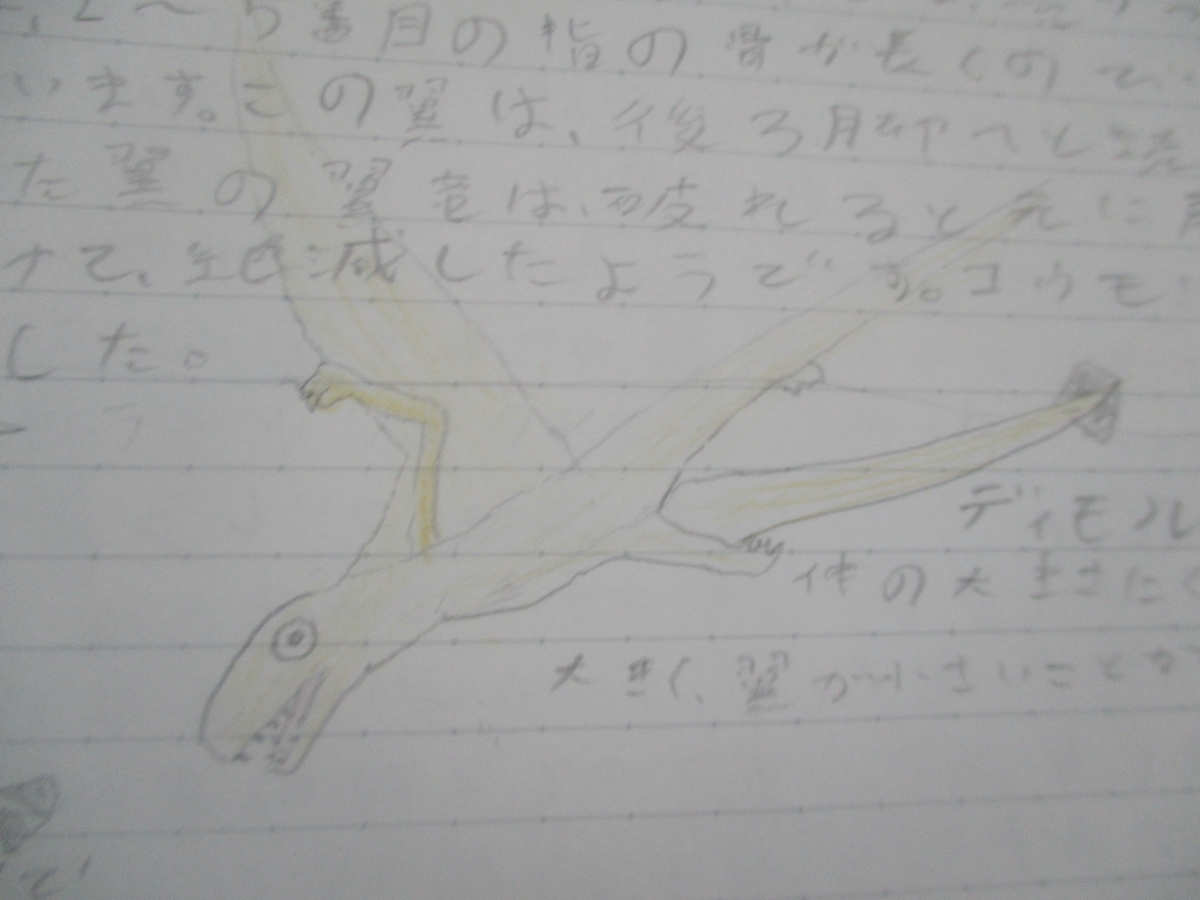 2〜5番目の指の骨が長くのて
います。この翼は、後ろ脚へと続
た翼の翼竜は、破れると元に
けて、絶滅したようです。コウモ
した。
ディモル
体の大きさにく
大きく、翼が小さいことが
で